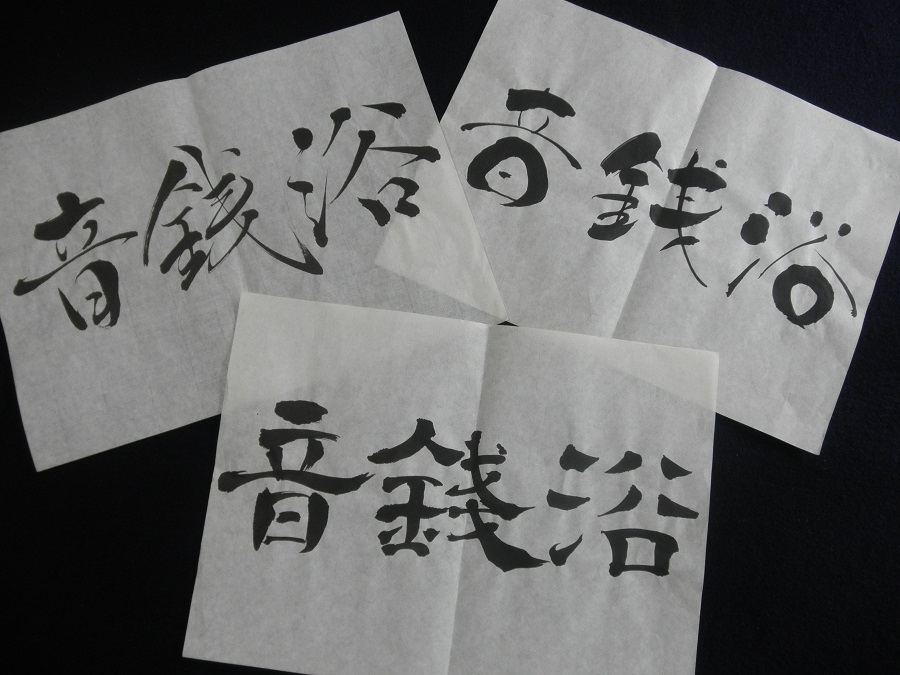 音銭浴
音銭浴
音錢浴